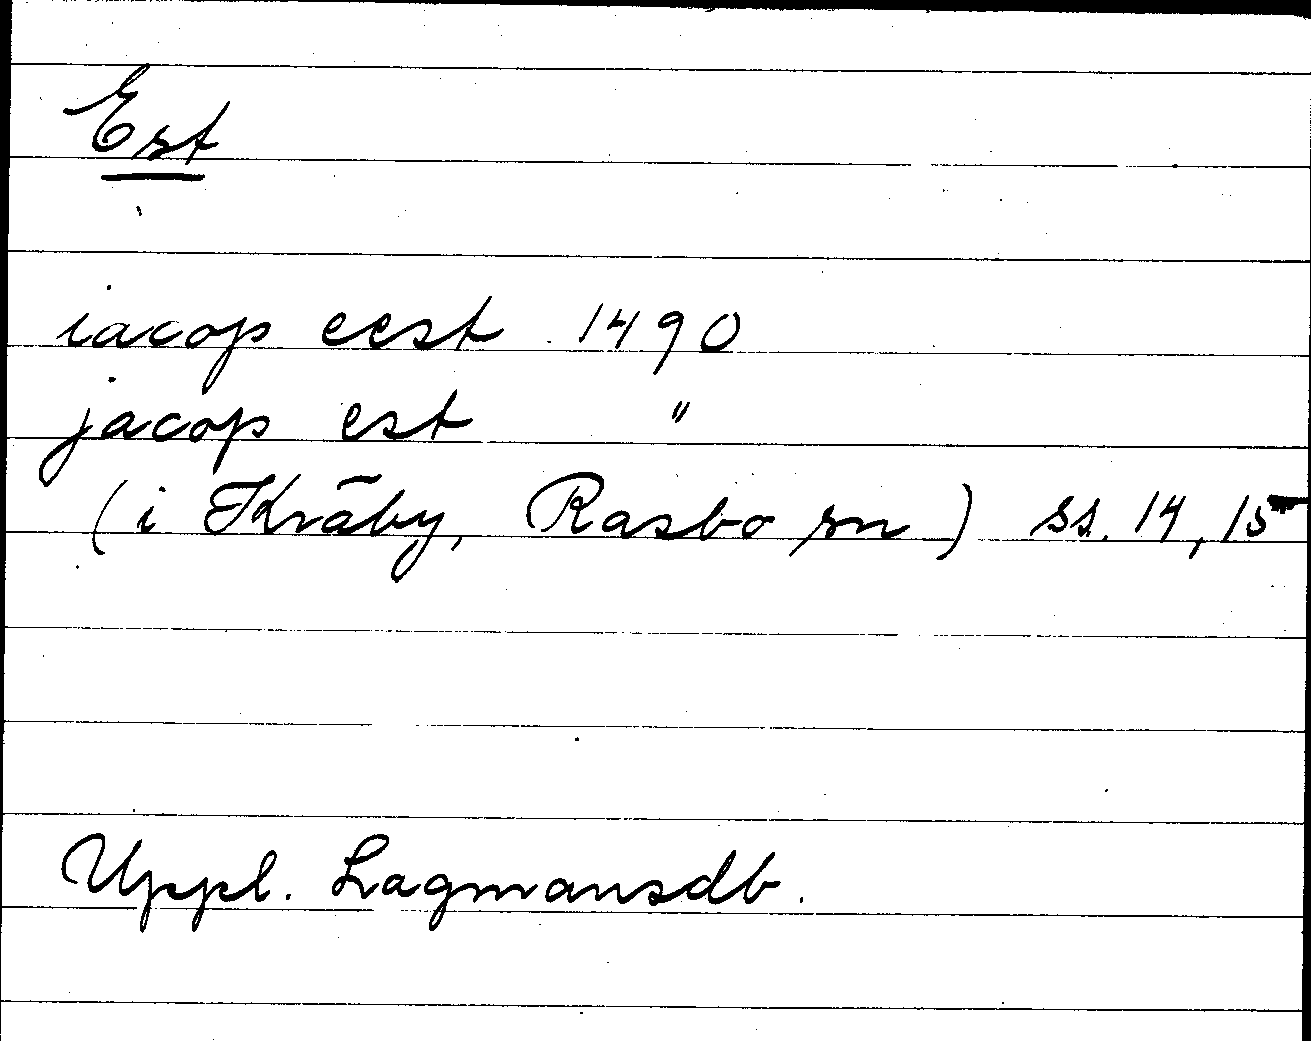 Est
iacop eest 1490
jacop est "
(i Kräby, Rasbo sn) ss. 14, 15
Uppl. Lagmansdb.